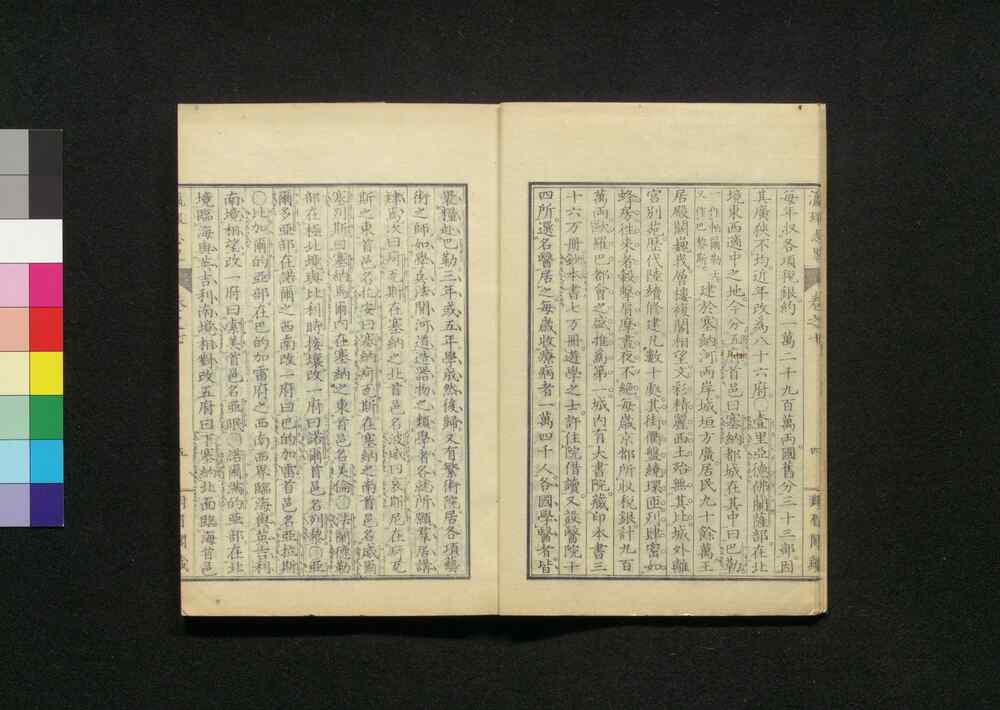 每年收各項稅銀約一萬二千九百萬兩國舊分三十三部因
其廣狹不均近年改為八十六府一壹里亞德佛蘭薩部在北
境東西適中之地今分五府首邑曰塞納都城在其中曰巴勒
一作帕爾勒士
又作巴黎斯
建於塞納河兩岸城垣方廣居民九十餘萬王
居殿闕巍峩層樓複閣相望文彩精麗西土殆無其比城外離
宮別苑歷代陸續修建凡數十處其街衢盤繞環匝列肆密如
蜂房往來者轂擊肩摩晝夜不絕每歲京都所收稅銀計九百
萬兩歐羅巴都會之盛推為第一城內有大書院藏印本書三
十六萬冊鈔本書七萬冊遊學之士許住院借讀又設醫院十
四所選名醫居之每歲收療病者一萬四千人各國學醫者皆
裹糧赴巴勒三年或五年學成然後歸又有藝術院居各項藝
術之師如學兵法開河道造器物之類學者各就所願羣居講
肄
斯之東首邑名
塞列斯曰塞納馬爾內在塞納之東首邑名美倫 法蘭德勒
部在極北境與比利時接壤改一府曰諾爾首邑名列 亞
爾多亞部在諾爾之西南改一府曰巴的加雷首邑名亞拉斯
○比加爾的亞部在巴的加雷府之西南西界臨海與英吉利
南境相望改一府曰 首邑名亞眠 諾爾滿的亞部在北
境臨海與英吉利南境相對改五府曰下塞納北面臨海首邑